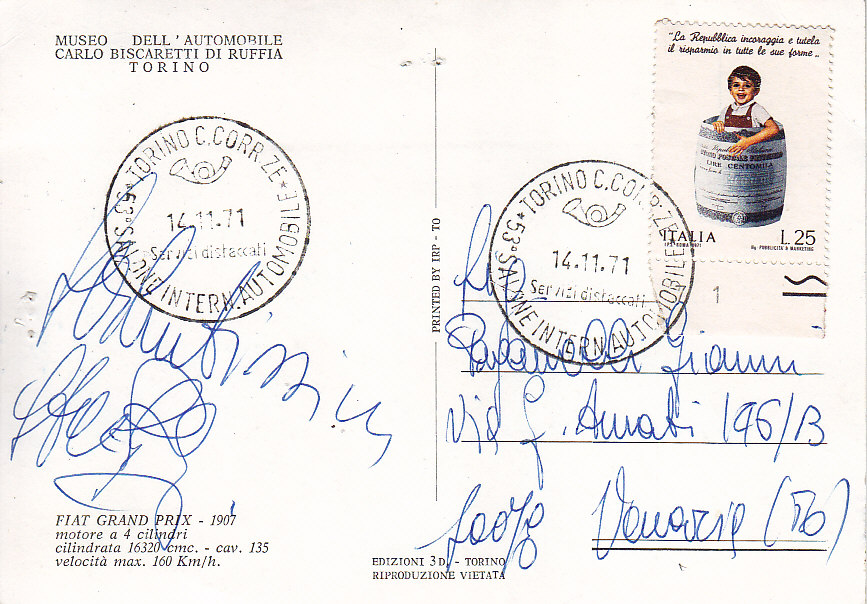 MUSEO DELL'AUTOMOBILE
CARLO BISCARETTI DI RUFFIA
TORINO
"La Repubblica incoraggia e tutela
il risparmio in tutte le sue forme„
LIRE CENTOMILA
ITALIA L.25
I.P.S. ROMA 1971
1
TORINO C.CORR.ZE
14.11.71
Servizi distaccati
*53° SALONE INTERN. AUTOMOBILE*
TORINO C.CORR.ZE
14.11.71
Servizi distaccati
*53° SALONE INTERN. AUTOMOBILE
PRINTED BY IRP - TO
Gianni
Via G. Amati 196/B
Venaria (TO)
FIAT GRAND PRIX - 1907
motore a 4 cilindri
cilindrata 16320 cmc. - cav. 135
velocità max. 160 Km/h.
EDIZIONI 3 D. - TORINO
RIPRODUZIONE VIETATA